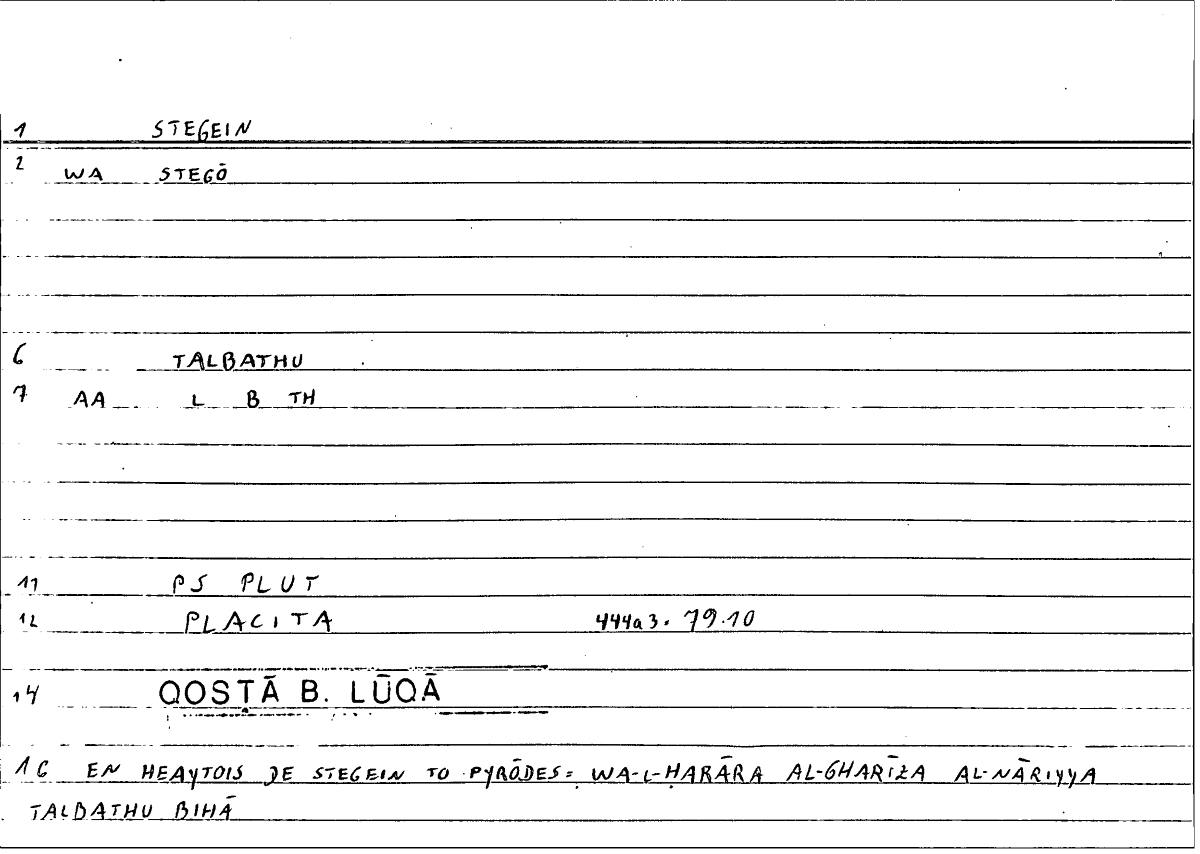 1 STEGEIN
2 WA STEGŌ
6 TALBATHU
7 AA L B TH
11 PS PLUT
12 PLACITA 444a3. 79.10
14 QOSṬĀ B. LŪQĀ
16 EN HEAYTOIS DE STEGEIN TO PYRŌDES = WA-L-ḤARĀRA AL-GHARĪZA AL-NĀRIYYA
TALBATHU BIHĀ